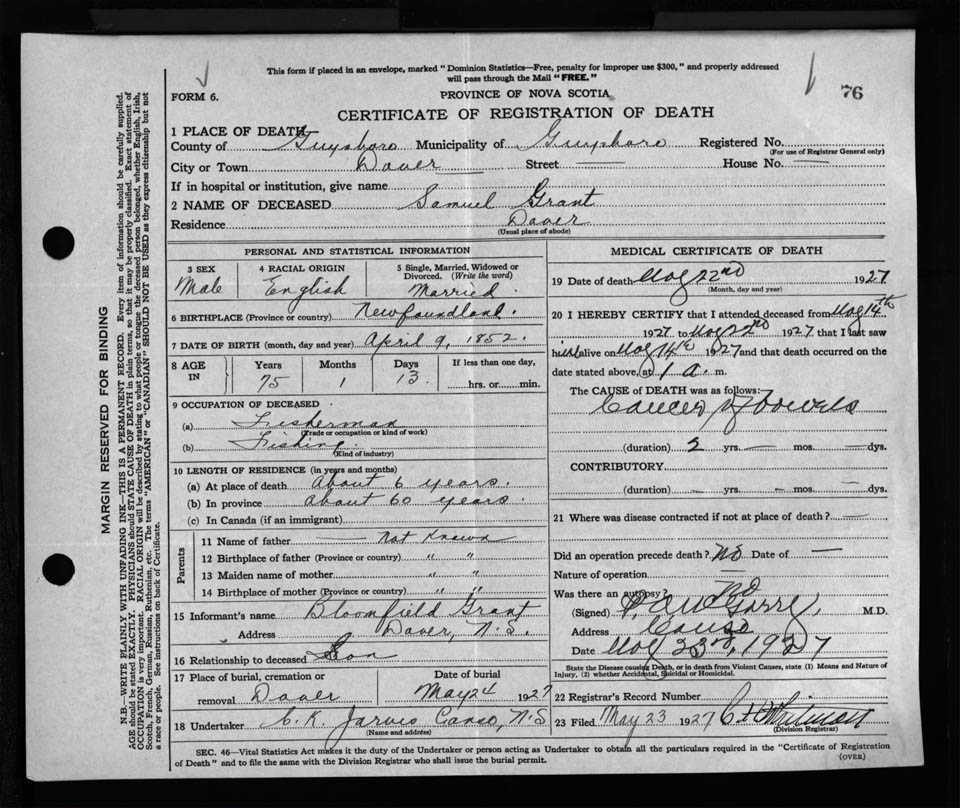 This form if placed in an envelope, marked "Dominion Statistics—Free, penalty for improper use $300," and properly addressed
will pass through the Mail "FREE."
76
FORM 6.
PROVINCE OF NOVA SCOTIA
CERTIFICATE OF REGISTRATION OF DEATH
1 PLACE OF DEATH
County of Guysboro Municipality of Guysboro Registered No.
(For use of Registrar General only)
City or Town Dover Street — House No. —
If in hospital or institution, give name
2 NAME OF DECEASED Samuel Grant
Residence Dover
(Usual place of abode)
PERSONAL AND STATISTICAL INFORMATION
3 SEX Male
4 RACIAL ORIGIN English
5 Single, Married, Widowed or
Divorced. (Write the word)
Married.
6 BIRTHPLACE (Province or country) Newfoundland.
7 DATE OF BIRTH (month, day and year) April 9, 1852.
8 AGE IN Years 75 Months 1 Days 13
If less than one day,
hrs. or min.
9 OCCUPATION OF DECEASED
(a) Fisherman
(Trade or occupation or kind of work)
(b) Fishing.
(Kind of industry)
10 LENGTH OF RESIDENCE (in years and months)
(a) At place of death About 6 years.
(b) In province About 60 years.
(c) In Canada (if an immigrant)
Parents
11 Name of father — Not Known
12 Birthplace of father (Province or country) " "
13 Maiden name of mother " "
14 Birthplace of mother (Province or country) " "
15 Informant's name Bloomfield Grant
Address Dover, N.S.
16 Relationship to deceased Son
17 Place of burial, cremation or
removal Dover
Date of burial
May 24 1927
18 Undertaker C. K. Jarvis Canso, N.S
(Name and address)
MEDICAL CERTIFICATE OF DEATH
19 Date of death May 22nd 1927
(Month, day and year)
20 I HEREBY CERTIFY that I attended deceased from May 14th
1927 to May 22nd 1927 that I last saw
him alive on May 14th 1927 and that death occurred on the
date stated above, at 1 a. m.
The CAUSE of DEATH was as follows:
Cancer of bowels
(duration) 2 yrs. — mos. — dys.
CONTRIBUTORY
(duration) — yrs. — mos. — dys.
21 Where was disease contracted if not at place of death? —
Did an operation precede death? No Date of —
Nature of operation —
Was there an autopsy? No
(Signed) M.D.
Address Canso
Date May 23rd, 1927
State the Disease causing Death, or in death from Violent Causes, state (1) Means and Nature of
Injury, (2) whether Accidental, Suicidal or Homicidal.
22 Registrar's Record Number
23 Filed May 23 1927
(Division Registrar)
SEC. 46—Vital Statistics Act makes it the duty of the Undertaker or person acting as Undertaker to obtain all the particulars required in the "Certificate of Registration
of Death" and to file the same with the Division Registrar who shall issue the burial permit.
(OVER)
MARGIN RESERVED FOR BINDING
N.B.—WRITE PLAINLY WITH UNFADING INK—THIS IS A PERMANENT RECORD. Every item of information should be carefully supplied.
AGE should be stated EXACTLY. PHYSICIANS should STATE CAUSE OF DEATH in plain terms, so that it may be properly classified. Exact statement of
OCCUPATION is very important. RACIAL ORIGIN will be described by stating to what people or tongue the deceased person belonged, whether English, Irish,
Scotch, French, German, Russian, Ruthenian, etc. The terms "AMERICAN" or "CANADIAN" SHOULD NOT BE USED as they express citizenship but not
a race or people. See instructions on back of Certificate.